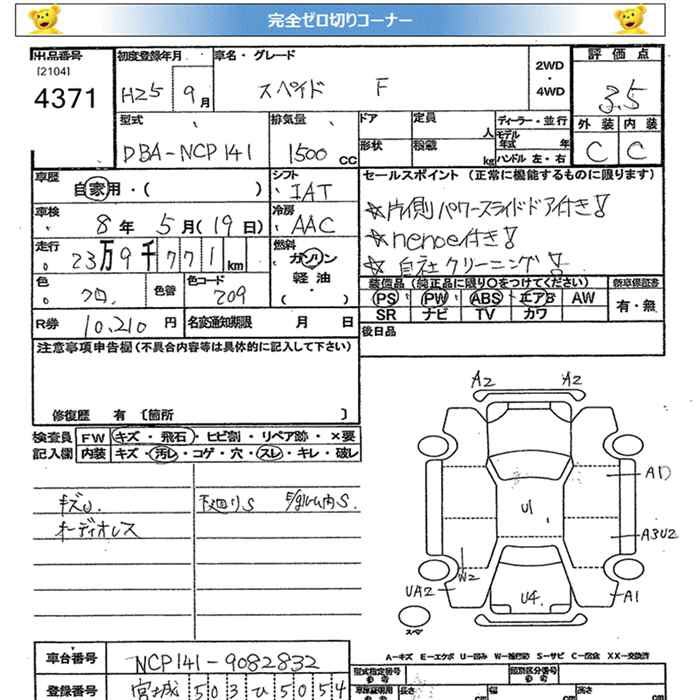 完全ゼロ切りコーナー
出品番号 初度登録年月 車名・グレード 2WD・4WD 評価点
[2104]
4371 H25 9月 スペイド F 3.5
型式 排気量 ドア 定員 人 ディーラー・並行 外装 内装
DBA-NCP141 1500cc 形状 積載 kg モデル年式 年 ハンドル 左・右 C C
車歴 自家用・( ) シフト IAT セールスポイント(正常に機能するものに限ります)
車検 8年 5月(19日) 冷房 AAC ☆片側パワースライドドア付き!
☆nenoe付き!
走行 23万9千771km 燃料 ガソリン・軽油・( ) ☆自社クリーニング!
色 クロ. 色替 色コード 209 装備品(純正品に限り○をつけてください) 新車保証書
PS PW ABS エアB AW 有・無
SR ナビ TV カワ
R券 10,210円 名変通知期限 月 日 後日品
注意事項申告欄(不具合内容等は具体的に記入して下さい)
修復歴 有 [箇所 ]
検査員 FW キズ・飛石・ヒビ割・リペア跡・×要
記入欄 内装 キズ・汚レ・コゲ・穴・スレ・キレ・破レ
キズU. 下廻りS E/gルーム内S.
オーディオレス
A2 A2
A1
U1
A3U2
W2
UA2 U4. A1
スペア
A=キズ E=エクボ U=凹み W=補修跡 S=サビ C=腐食 XX=交換済
車台番号 NCP141-9082832
型式指定番号 参考 類別区分番号 参考
登録番号 宮城 503 ひ 5054
長さ cm 幅 cm 高さ cm